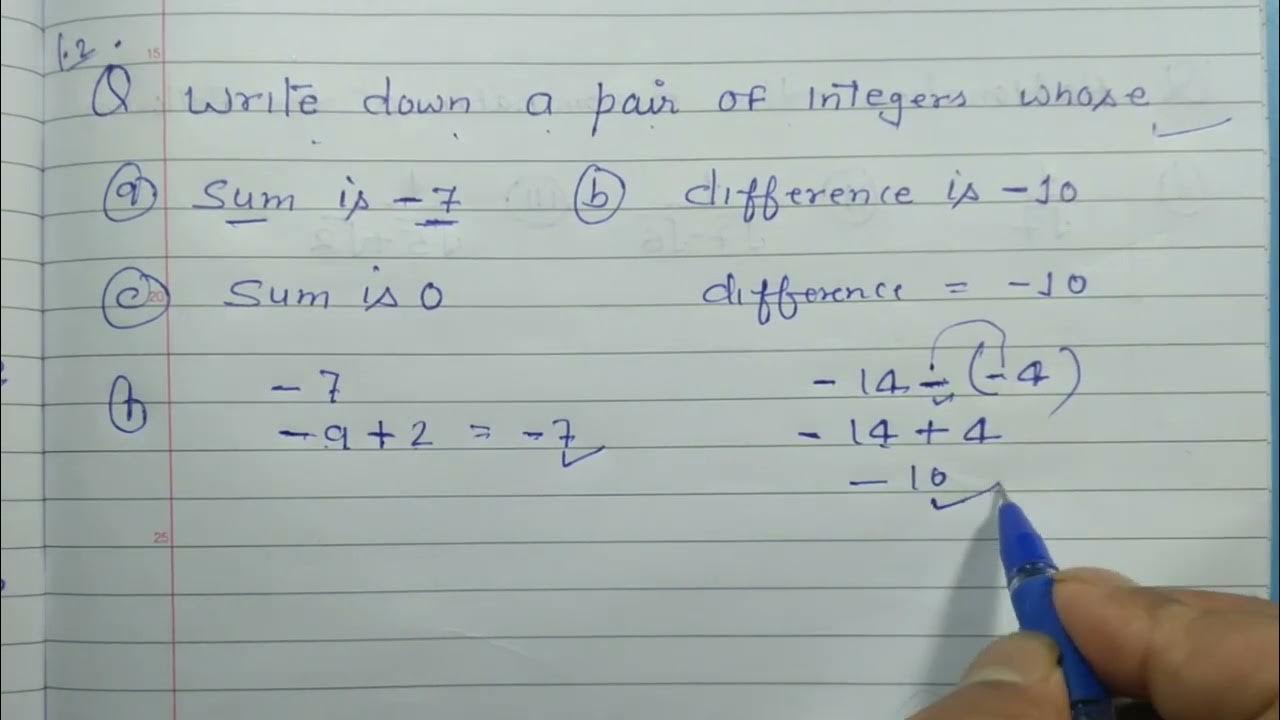 1.2.
Q Write down a pair of integers whose
(a) Sum is -7 (b) difference is -10
(c) Sum is 0 difference = -10
-7 -14 - (-4)
-9 + 2 = -7 -14 + 4
-10
15
20
25